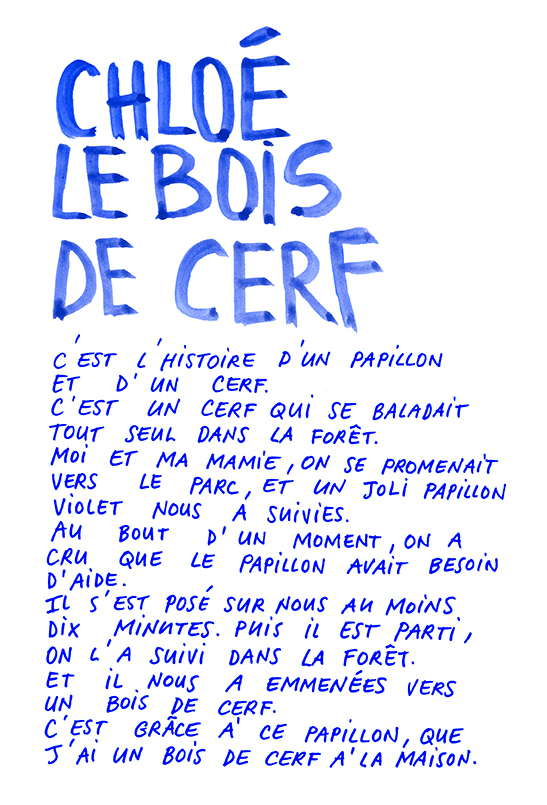 CHLOÉ
LE BOIS
DE CERF
C'EST L'HISTOIRE D'UN PAPILLON
ET D'UN CERF.
C'EST UN CERF QUI SE BALADAIT
TOUT SEUL DANS LA FORÊT.
MOI ET MA MAMIE, ON SE PROMENAIT
VERS LE PARC, ET UN JOLI PAPILLON
VIOLET NOUS A SUIVIES.
AU BOUT D'UN MOMENT, ON A
CRU QUE LE PAPILLON AVAIT BESOIN
D'AIDE.
IL S'EST POSÉ SUR NOUS AU MOINS
DIX MINUTES. PUIS IL EST PARTI,
ON L'A SUIVI DANS LA FORÊT.
ET IL NOUS A EMMENÉES VERS
UN BOIS DE CERF.
C'EST GRÂCE À CE PAPILLON, QUE
J'AI UN BOIS DE CERF À LA MAISON.